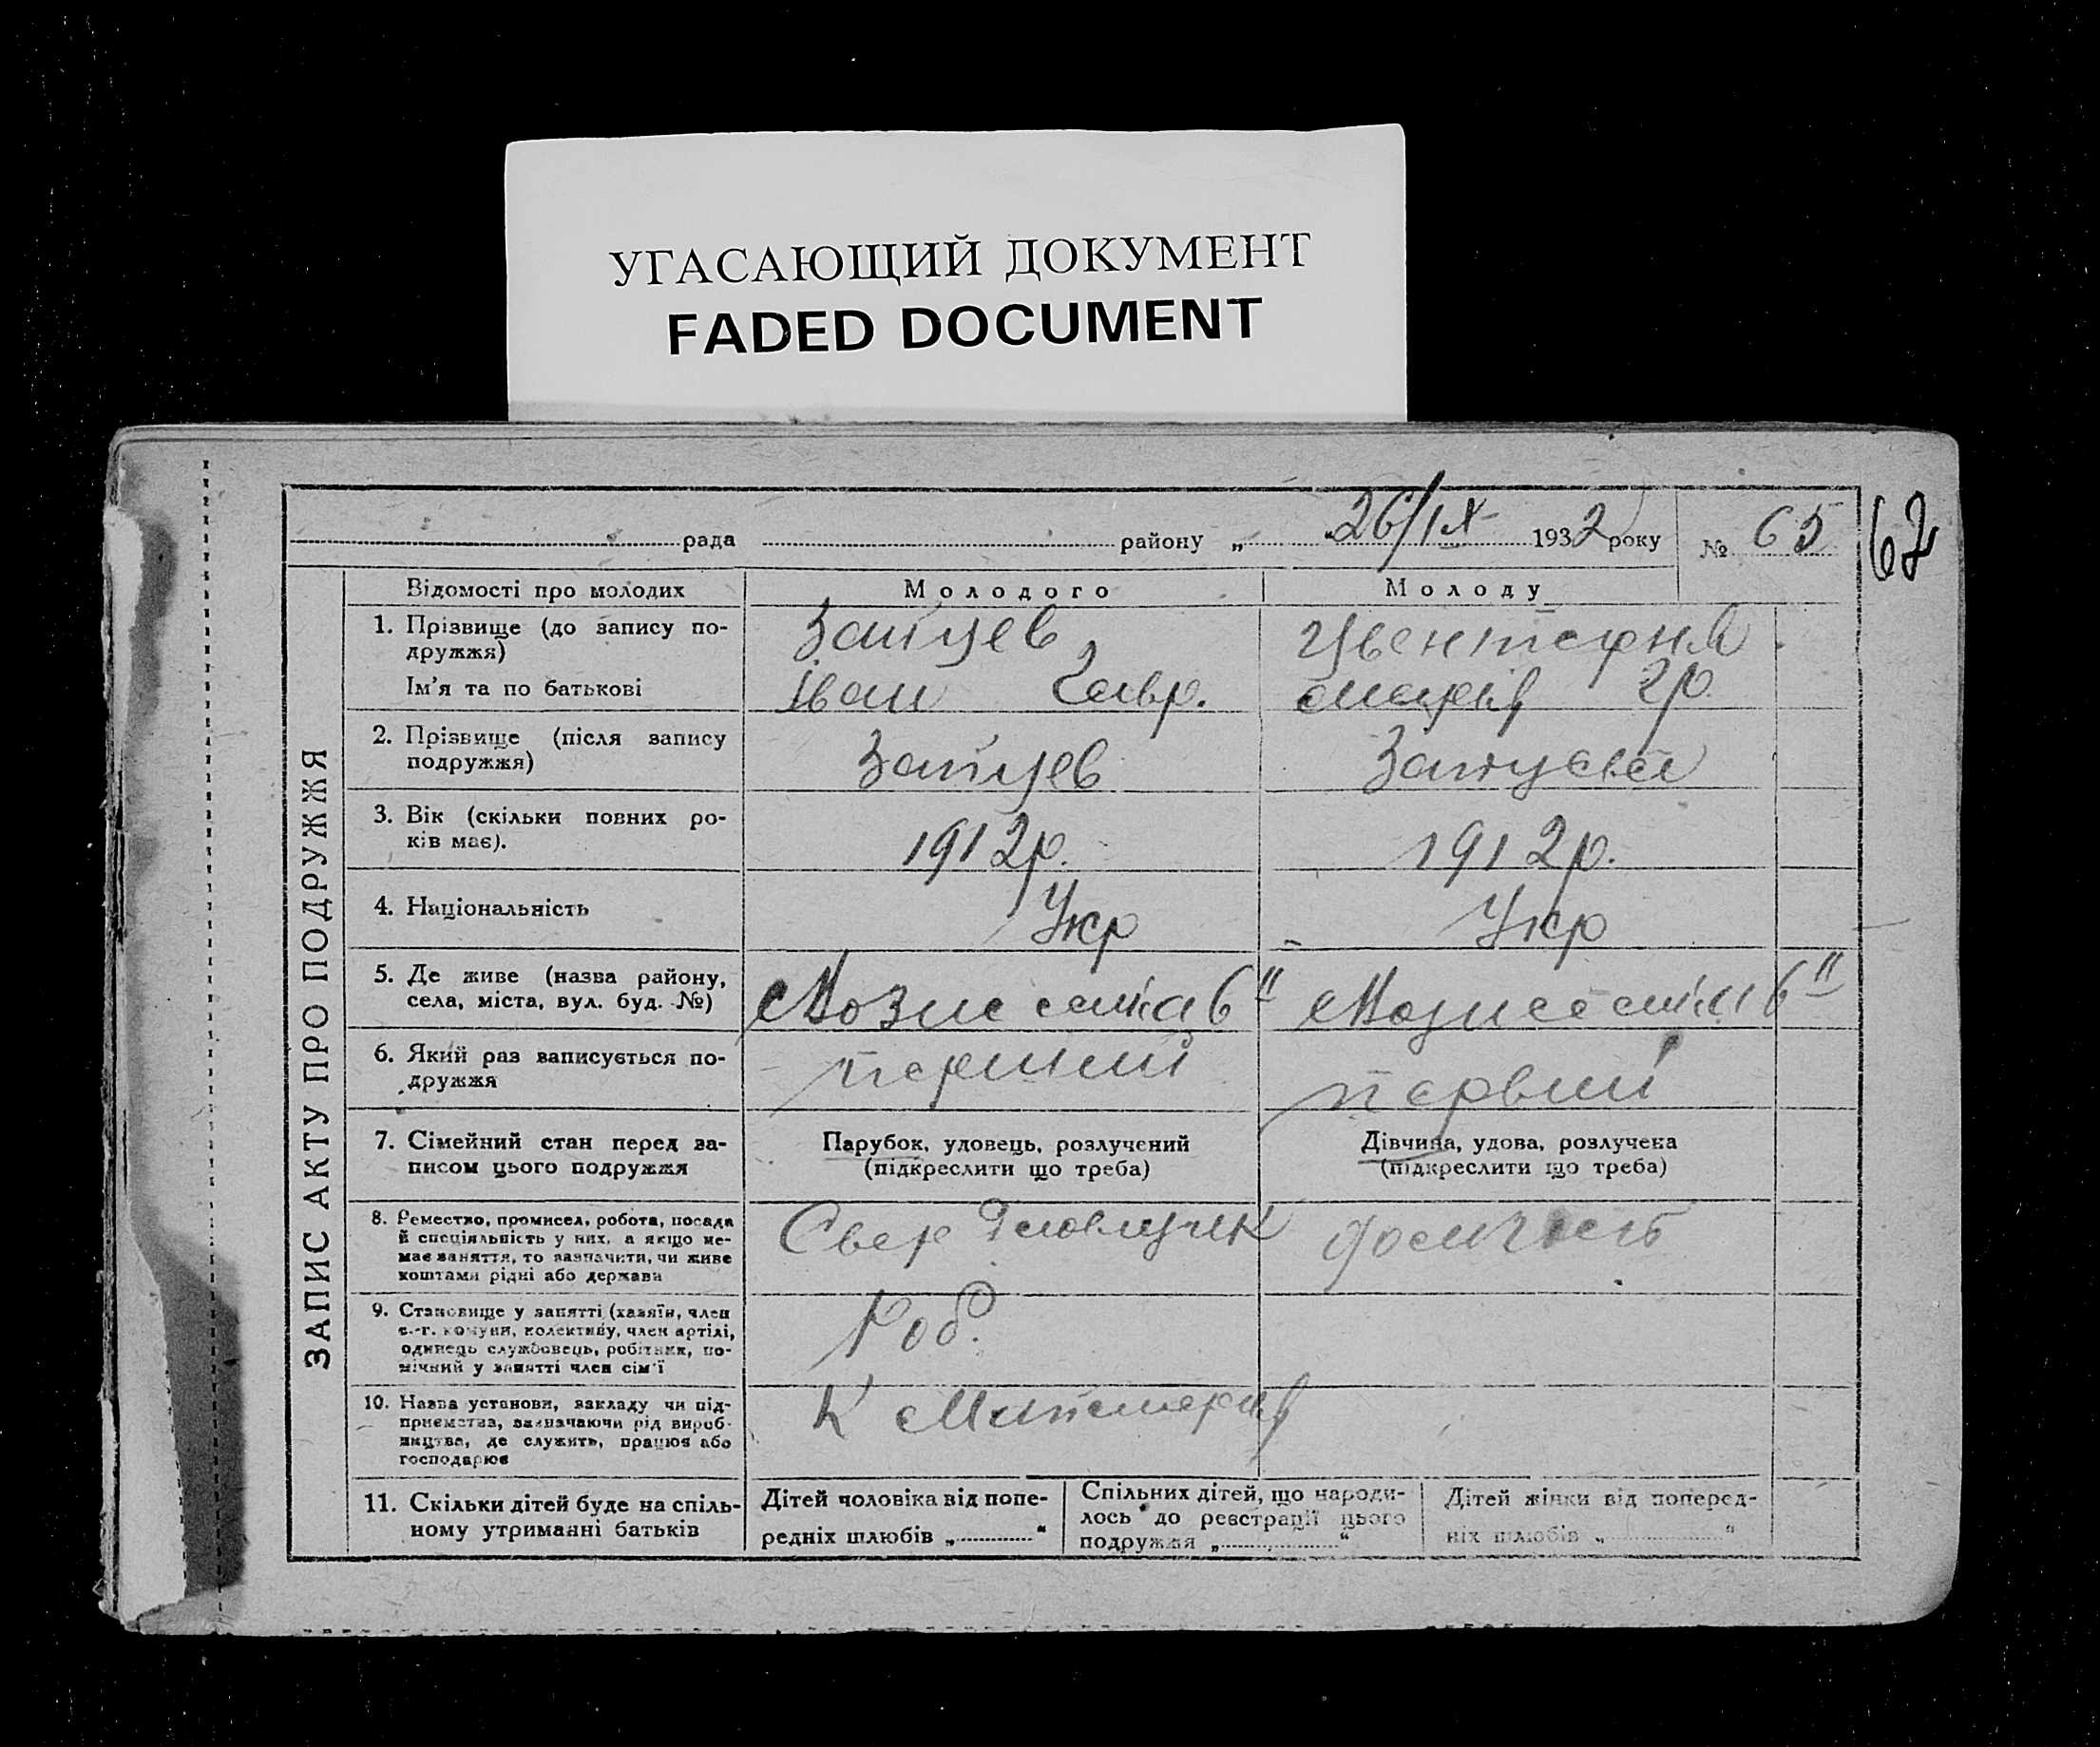 УГАСАЮЩИЙ ДОКУМЕНТ
FADED DOCUMENT
рада району „ 26/IX 1932 року № 65
67
ЗАПИС АКТУ ПРО ПОДРУЖЖЯ
Відомості про молодих Молодого Молоду
1. Прізвище (до запису по-
дружжя)
Зайцев
Ім'я та по батькові
Іван Гавр. Марія Гр.
2. Прізвище (після запису
подружжя)
Зайцев Зайцева
3. Вік (скільки повних ро-
ків має).
1912р. 1912р.
4. Національність
Укр Укр
5. Де живе (назва району,
села, міста, вул. буд. №)
6"
6"
6. Який раз записується по-
дружжя
перший первий
7. Сімейний стан перед за-
писом цього подружжя
Парубок, удовець, розлучений
(підкреслити що треба)
Дівчина, удова, розлучена
(підкреслити що треба)
8. Ремество, промисел, робота, посада
й спеціяльність у них, а якщо не-
має заняття, то зазначити, чи живе
коштами рідні або держави
9. Становище у занятті (хазяїн, член
с.-г. комуни, колективу, член артілі,
одинець службовець, робітник, по-
мічний у занятті член сім'ї
Роб.
10. Назва установи, закладу чи під-
приємства, зазначаючи рід вироб-
ництва, де служить, працює або
господарює
К
11. Скільки дітей буде на спіль-
ному утриманні батьків
Дітей чоловіка від попе-
редніх шлюбів „ “
Спільних дітей, що народи-
лось до реєстрації цього
подружжя „ “
Дітей жінки від поперед-
ніх шлюбів „ “